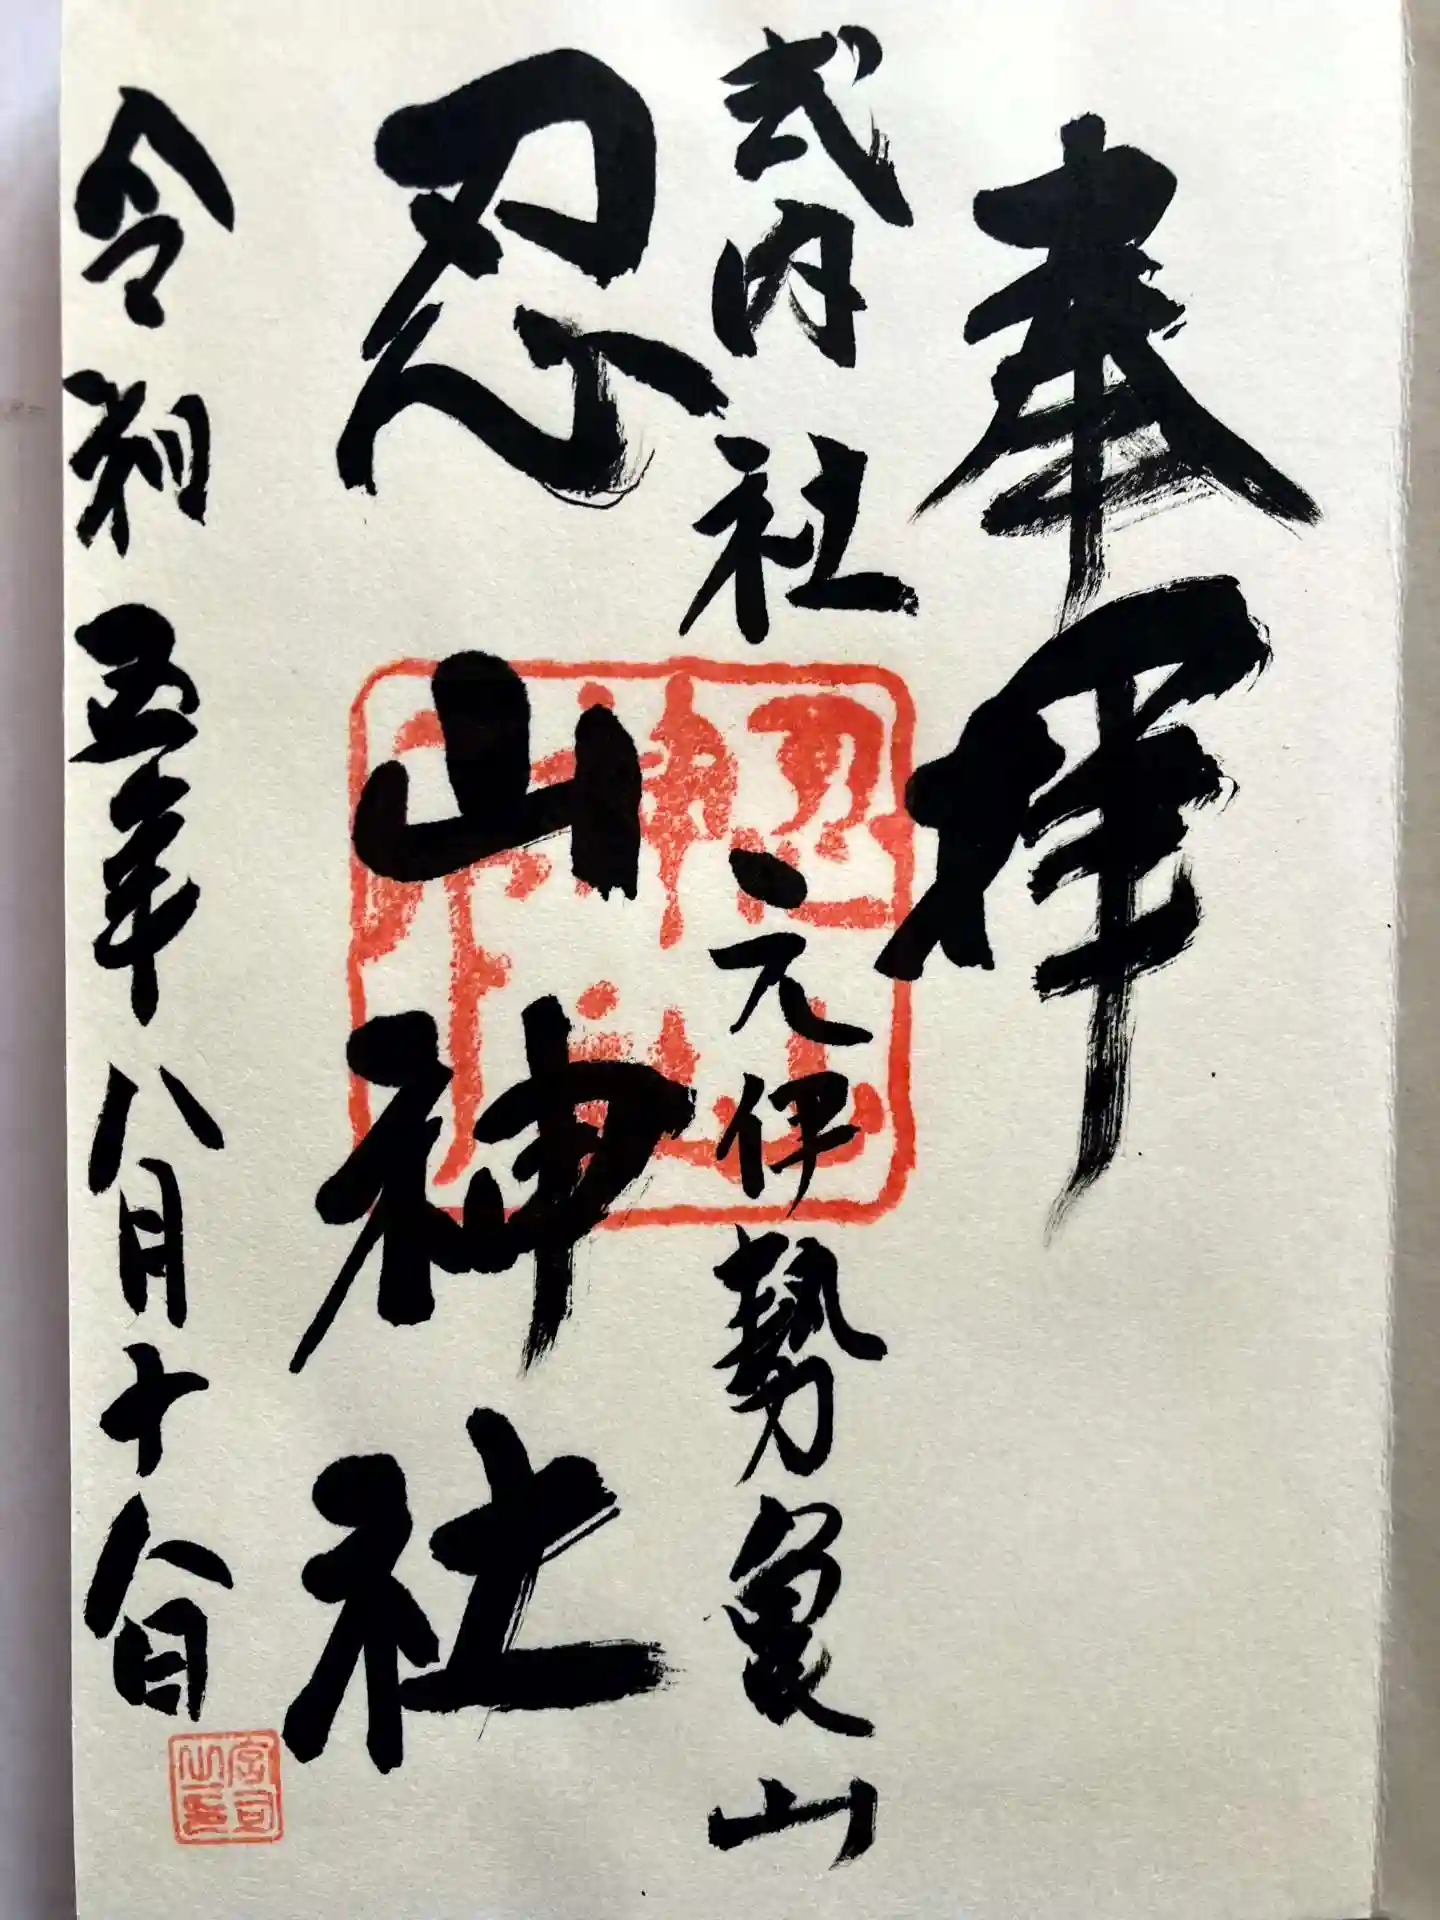 奉拝
式内社
元伊勢亀山
忍山神社
令和五年八月十八日
忍山
神社
宮司
之印